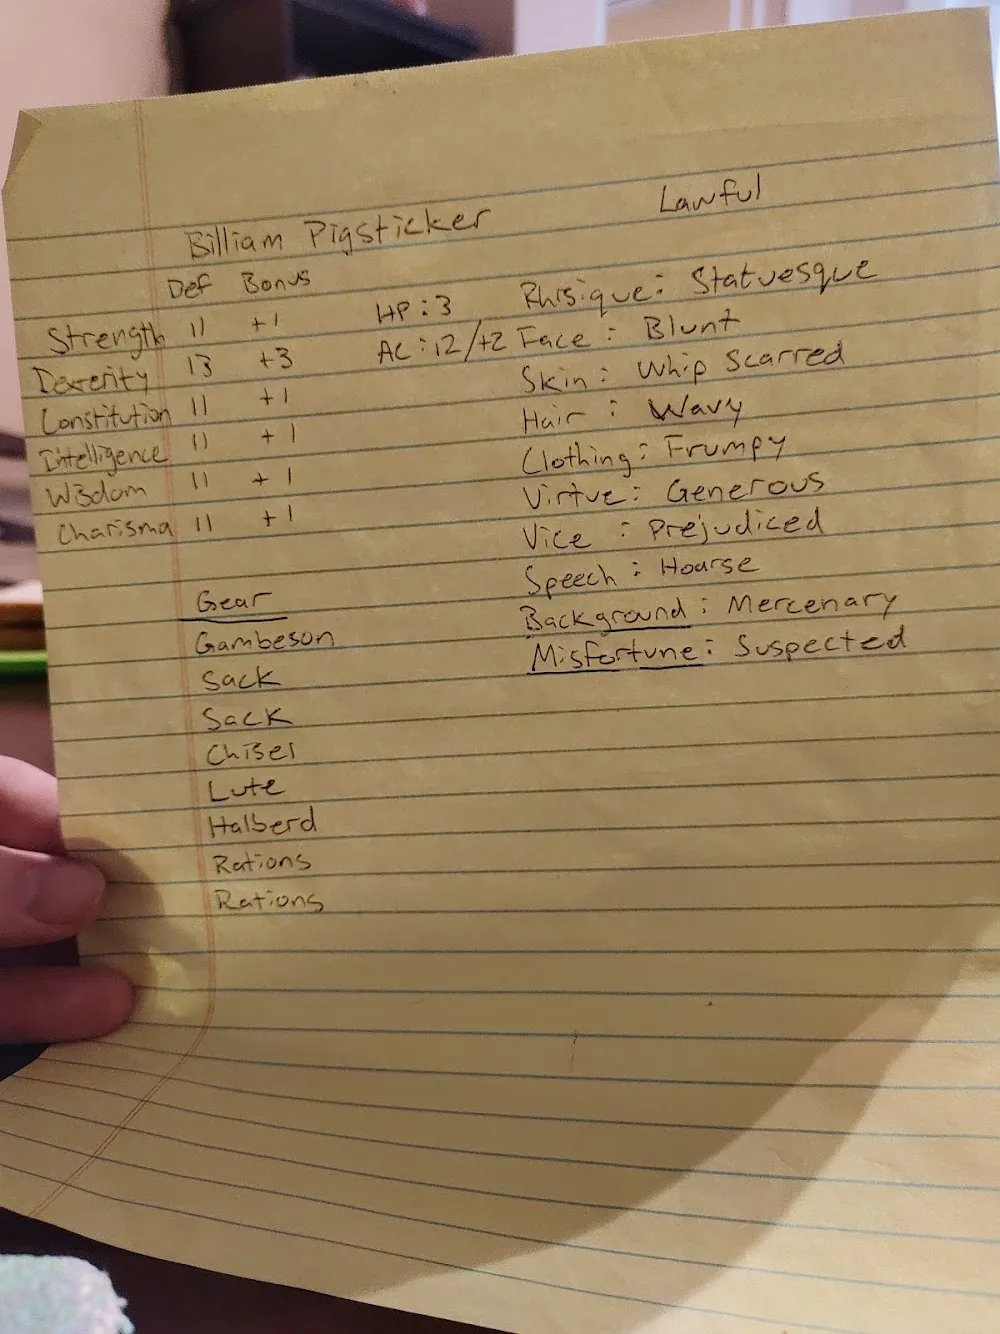 Lawful
Billiam Pigsticker
Def Bonus
Strength 11 +1
Dexterity 13 +3
Constitution 11 +1
Intelligence 11 +1
Wisdom 11 +1
Charisma 11 +1
HP: 3
AC: 12/+2
Phisique: Statuesque
Face: Blunt
Skin: Whip Scarred
Hair: Wavy
Clothing: Frumpy
Virtue: Generous
Vice: Prejudiced
Speech: Hoarse
Background: Mercenary
Misfortune: Suspected
Gear
Gambeson
Sack
Sack
Chisel
Lute
Halberd
Rations
Rations